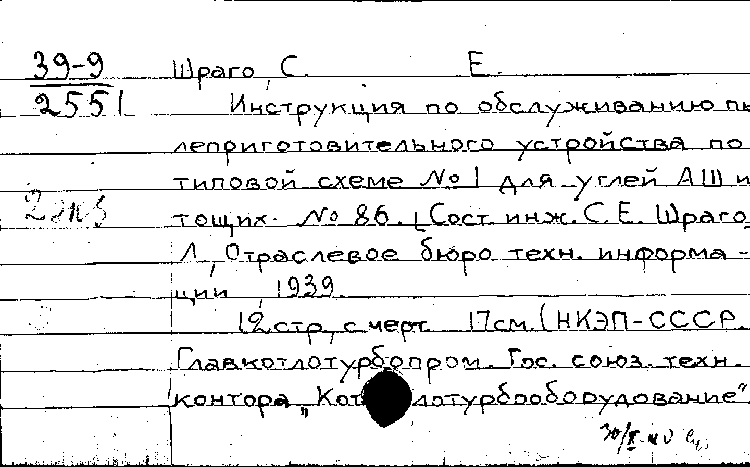 39-9
2551
Шраго, С. Е.
Инструкция по обслуживанию пы
леприготовительного устройства по
типовой схеме №1 для углей АШ и
2 экз
тощих. № 86. [Сост. инж. С. Е. Шраго,
Л., Отраслевое бюро техн. информа-
ции, 1939.
12 стр., с черт. 17см. (НКЭП-СССР.
Главкотлотурбопром. Гос. союз. техн.
контора „Кот лотурбооборудование"